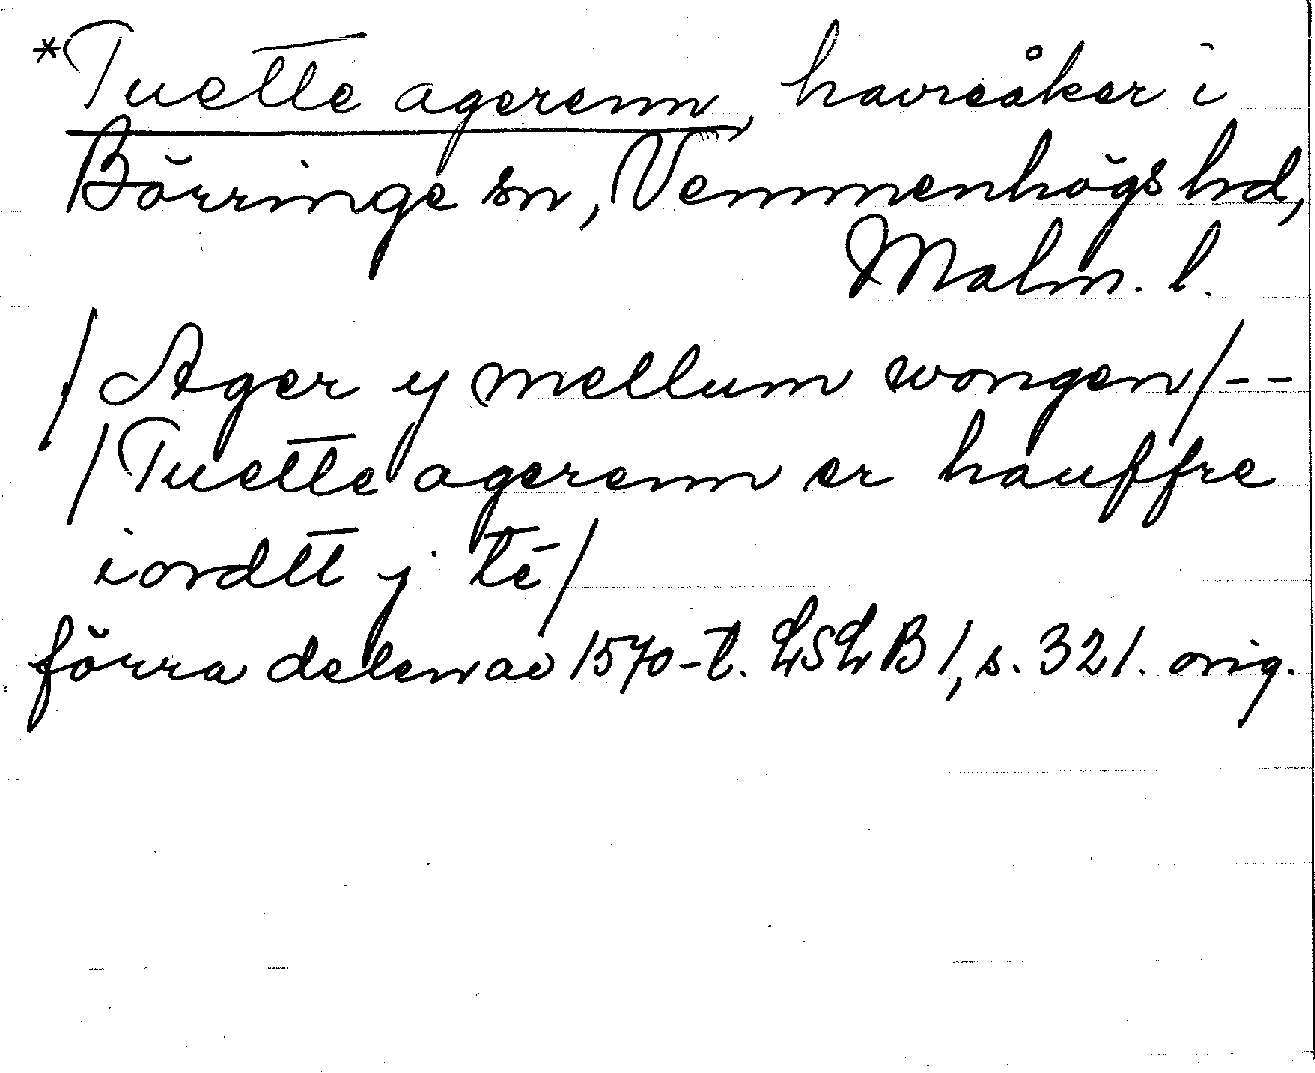 *Tuette agerenn, havreåker i
Börringe sn, Vemmenhögs hd,
Malm. l.
/Ager y mellum wongen/--
/Tuette agerenn er hauffre
iordtt j té/
förra delen av 1570-t. LSLB 1, s. 321. orig.